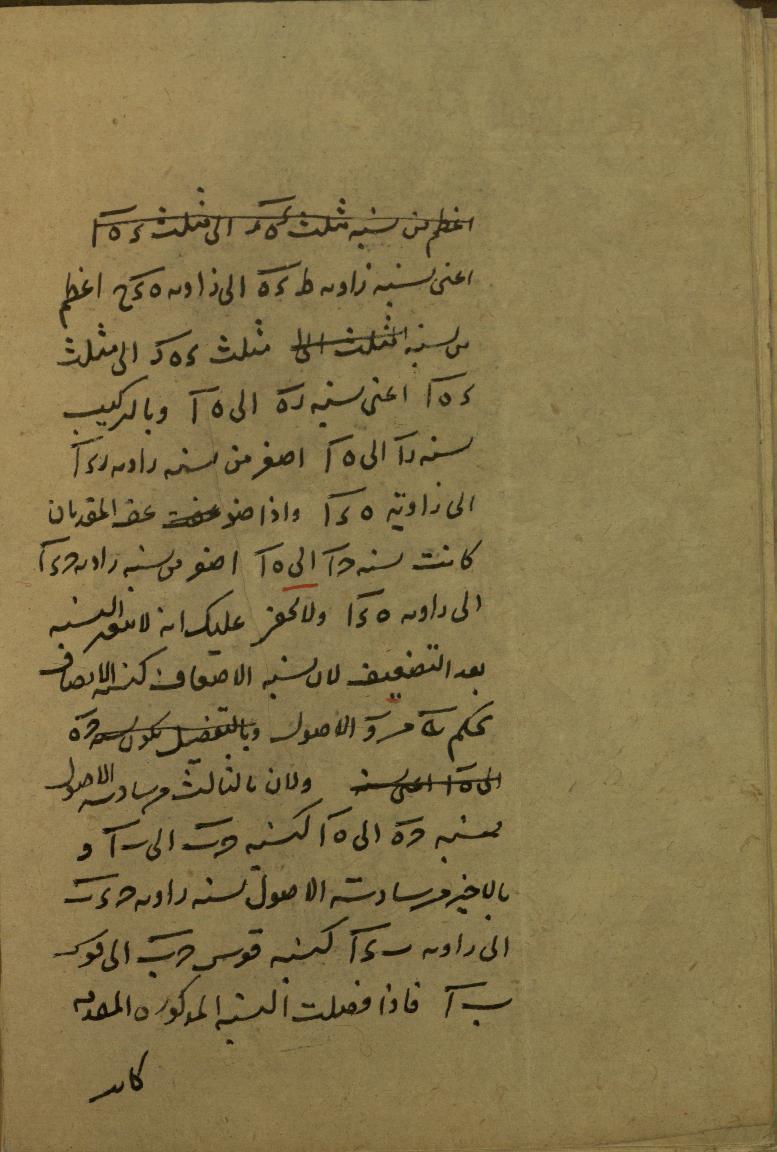 اعظم من نسبة مثلث ء ه د الى مثلث ء ه آ
اعنى نسبة زاوية ط ء ه الى زاوية ه ء ح اعظم
من نسبة المثلث الى مثلث ء ه د الى مثلث
ء ه آ اعنى نسبة ر ه الى ه آ وبالتركيب
نسبة ر آ الى ه آ اصغر من نسبة زاوية ر ء آ
الى زاوية ه ء آ واذا ضوعف المقدمان
كانت نسبة حـ آ الى ه آ اصغر من نسبة زاوية حـ ء آ
الى زاوية ه ء آ ولا يخفى عليك انه لا يتغير النسبة
بعد التضعيف لان نسبة الاضعاف كنسبة الانصاف
بحكم يه من ه الاصول وبالتفضيل يكون نسبة حـ ه
الى ه آ اعنى نسبة ولان بالثالث من سادسة الاصول
نسبة حـ ه الى ه آ كنسبة حـ ب الى ب آ و
بالاخير من سادسة الاصول نسبة زاوية حـ ء ب
الى زاوية ب ء آ كنسبة قوس حـ ب الى قوس
ب آ فاذا فصلت النسبة المذكورة المقدمة
كانت